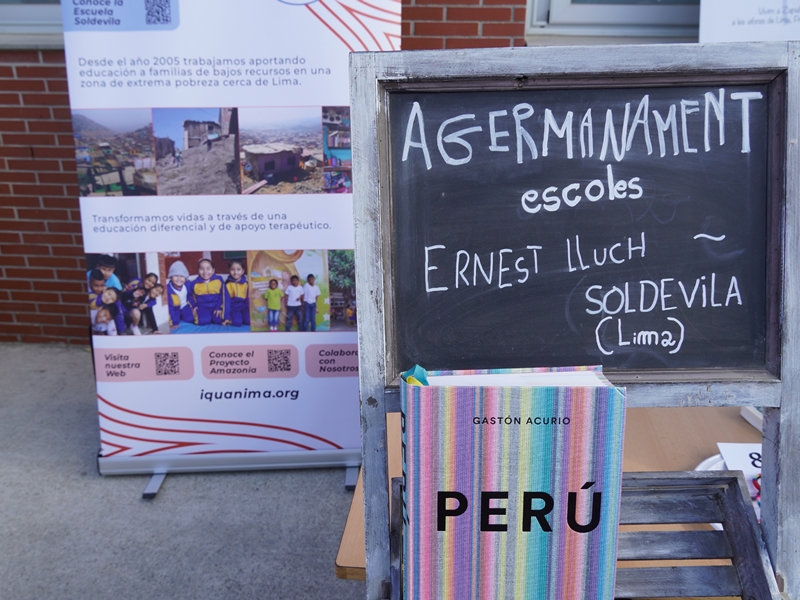 Conoce la
Escuela
Soldevila
Desde el año 2005 trabajamos aportando
educación a familias de bajos recursos en una
zona de extrema pobreza cerca de Lima.
Transformamos vidas a través de una
educación diferencial y de apoyo terapéutico.
Visita
nuestra
Web
Conoce el
Proyecto
Amazonía
Colabora
con
Nosotros
iquanima.org
AGERMANAMENT
escoles
ERNEST LLUCH ~
SOLDEVILA
(Lima)
GASTÓN ACURIO
PERÚ
8